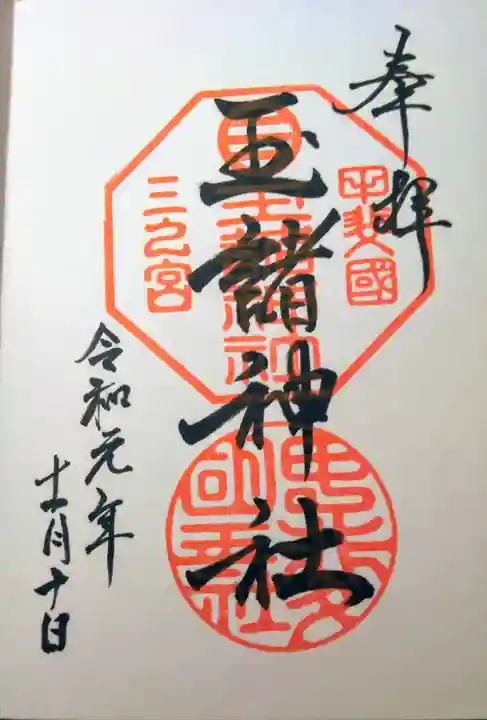 奉拝
甲斐國
玉諸神社
三之宮
令和元年
十一月十日